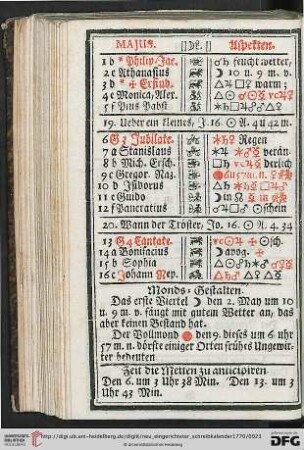 MAJUS. []DL.[] Aspekten.
1 b * Philip-Jac. ☌♄ feucht wetter,
2 c Athanasius ☽ 10 u. 9 m. v.
3 d * ✠ Erfind. △♃ □♀ warm;
4 e Monica, Flor.
5 f Pius Pabst
19. Ueber ein kleines, J. 16. ☉ A. 4 u 42 m.
6 G 3 Jubilate. *♄♀ Regen
7 a Stanislaus verän-
8 b Mich. Ersch. derlich
9 c Gregor. Naz. 6 u 57 m. n.
10 d Isidorus
11 e Guido
12 f Pancratius ☉schein
20. Wann der Tröster, Jo. 16. ☉ A. 4. 34
13 G 4 Cantate. ☉sch.
14 a Bonifacius ☽ apog.
15 b Sophia
16 c Johann Nep.
Monds-Gestalten.
Das erste Viertel ☽ den 2. May um 10
u. 9 m. v. fängt mit gutem Wetter an, das
aber keinen Bestand hat.
Der Vollmond den 9. dieses um 6 uhr
57 m. n. dörfte einiger Orten frühes Ungewit-
ter bedeuten
Zeit die Metten zu anticipiren
Den 6. um 3 Uhr 38 Min. Den 13. um 3
Uhr 43 Min.
UNIVERSITÄTS-
BIBLIOTHEK
HEIDELBERG
http://digi.ub.uni-heidelberg.de/diglit/neu_eingerichteter_schreibkalender1770/0021
© Universitätsbibliothek Heidelberg
gefördert durch die
DFG